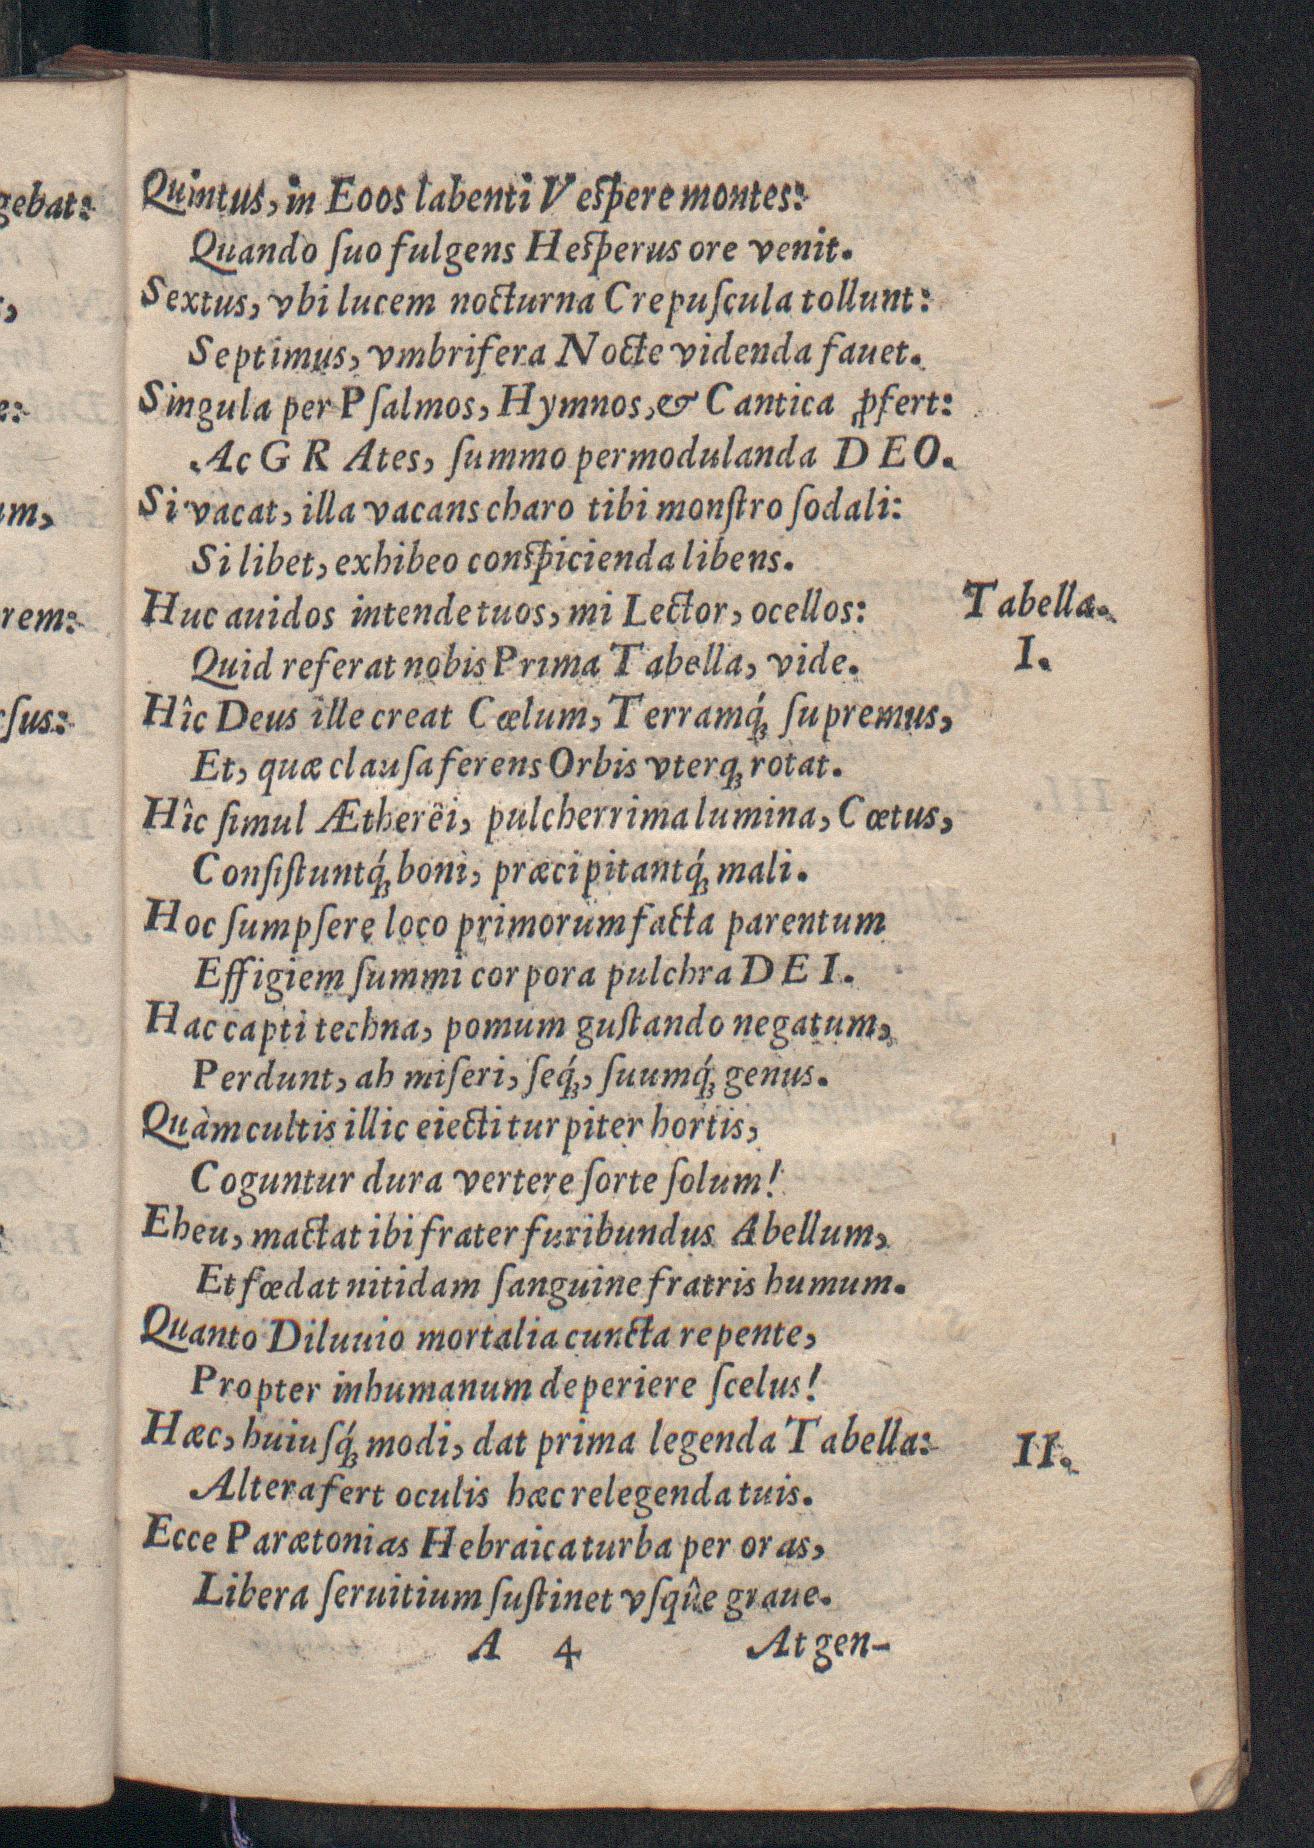 Quintus, in Eoos labenti Vespere montes:
Quando ſuo fulgens Hesperus ore venit.
Sextus, vbi lucem nocturna Crepuſcula tollunt:
Septimus, vmbrifera Nocte videnda fauet.
Singula per Pſalmos, Hymnos, & Cantica ꝓfert:
Ac GRAtes, ſummo permodulanda DEO.
Si vacat, illa vacans charo tibi monſtro ſodali:
Si libet, exhibeo conspicienda libens.
Huc auidos intende tuos, mi Lector, ocellos:
Tabella.
Quid referat nobis Prima Tabella, vide.
I.
Hîc Deus ille creat Cœlum, Terramq́ꝫ ſupremus,
Et, quæ clauſa ferens Orbis vterqꝫ rotat.
Hîc ſimul Æthereî, pulcherrima lumina, Cœtus,
Conſiſtuntq́ꝫ boni, præcipitantq́ꝫ mali.
Hoc ſumpſere loco primorum facta parentum
Effigiem ſummi corpora pulchra DEI.
Hac capti techna, pomum guſtando negatum,
Perdunt, ah miſeri, ſeq́ꝫ, ſuumq́ꝫ genus.
Quàm cultis illic eiecti turpiter hortis,
Coguntur dura vertere ſorte ſolum!
Eheu, mactat ibi frater furibundus Abellum,
Et fœdat nitidam ſanguine fratris humum.
Quanto Diluuio mortalia cuncta repente,
Propter inhumanum deperiere ſcelus!
Hæc, huiuſq́ꝫ modi, dat prima legenda Tabella:
II.
Altera fert oculis hæc relegenda tuis.
Ecce Parætonias Hebraica turba per oras,
Libera ſeruitium ſuſtinet vſqûe graue.
A 4
At gen-
gebat:
e:
um,
rem:
ſus: